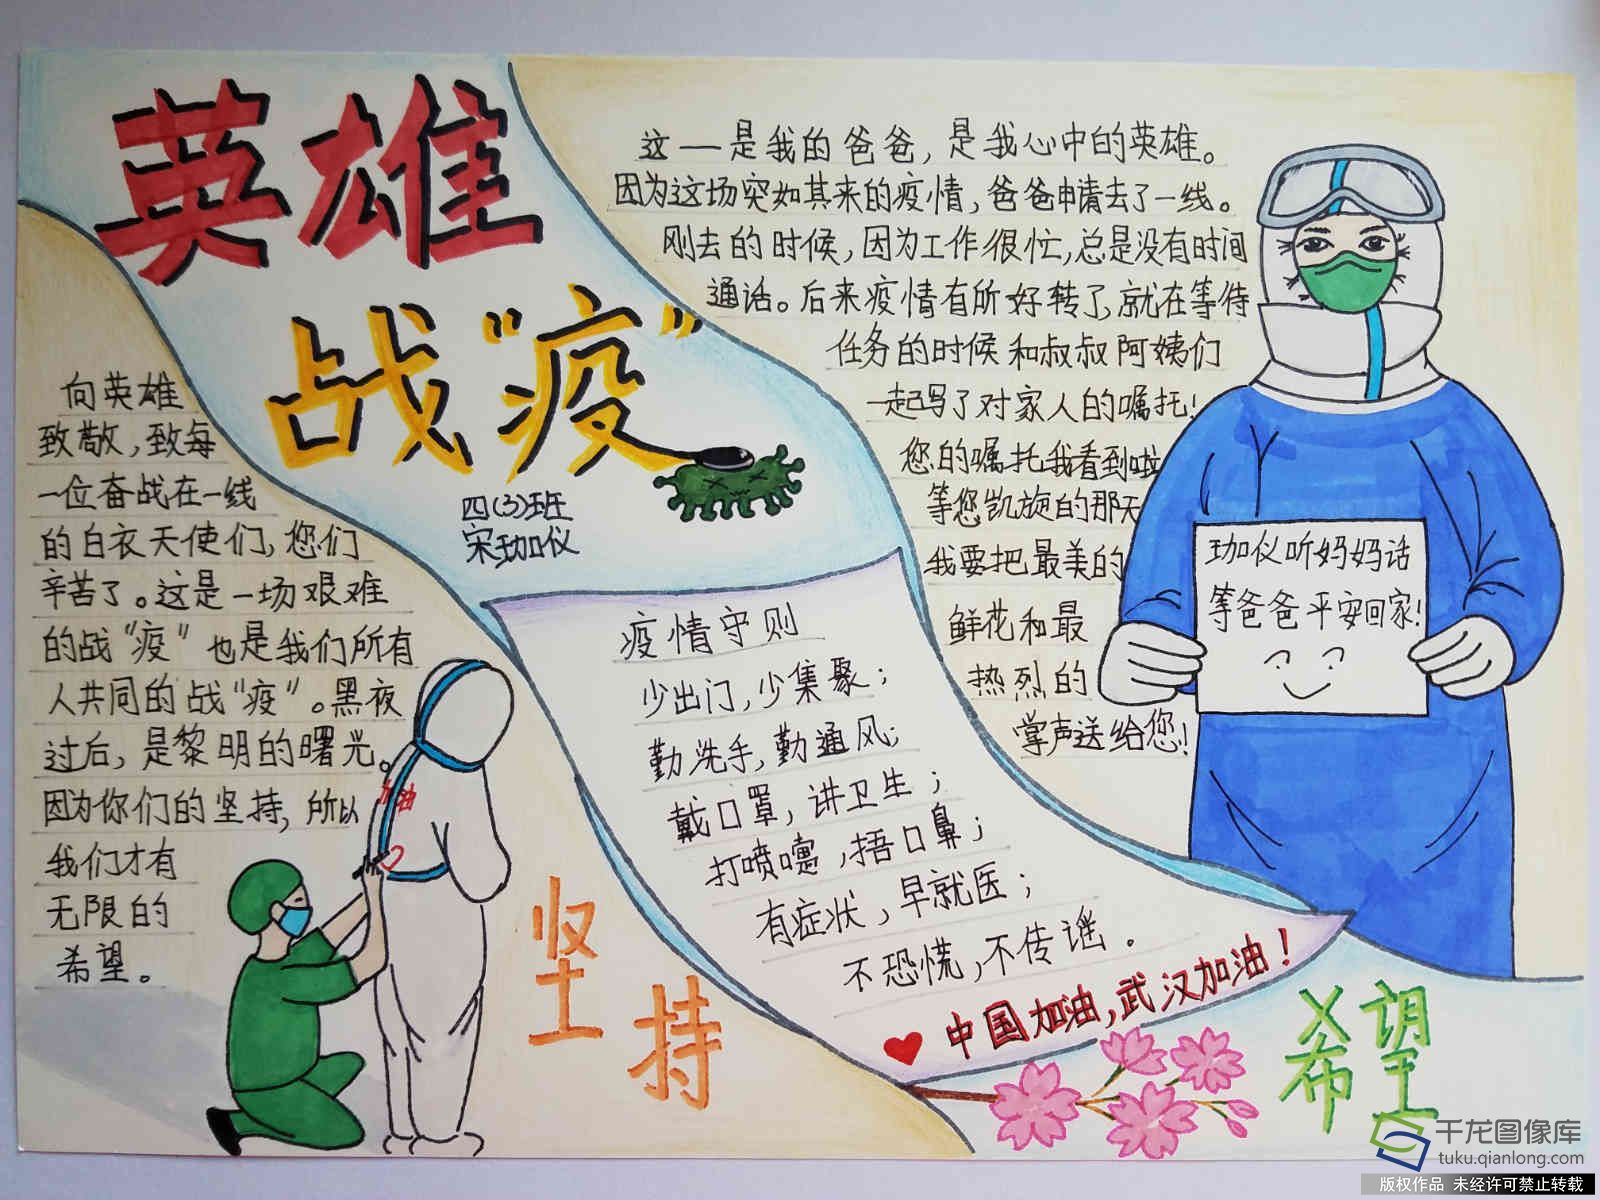 英雄
战“疫”
四(3)班
宋珈仪
向英雄
致敬,致每
一位奋战在一线
的白衣天使们,您们
辛苦了。这是一场艰难
的战“疫”也是我们所有
人共同的战“疫”。黑夜
过后,是黎明的曙光。
因为你们的坚持,所以
我们才有
无限的
希望。
加油
坚持
疫情守则
少出门,少集聚;
勤洗手,勤通风;
戴口罩,讲卫生;
打喷嚏,捂口鼻;
有症状,早就医;
不恐慌,不传谣.
中国加油,武汉加油!
这一是我的爸爸,是我心中的英雄。
因为这场突如其来的疫情,爸爸申请去了一线。
刚去的时候,因为工作很忙,总是没有时间
通话。后来疫情有所好转了,就在等待
任务的时候和叔叔阿姨们
一起写了对家人的嘱托!
您的嘱托我看到啦
等您凯旋的那天
我要把最美的
鲜花和最
热烈的
掌声送给您!
珈仪听妈妈话
等爸爸平安回家!
希望
千龙图像库
tuku.qianlong.com
版权作品 未经许可禁止转载